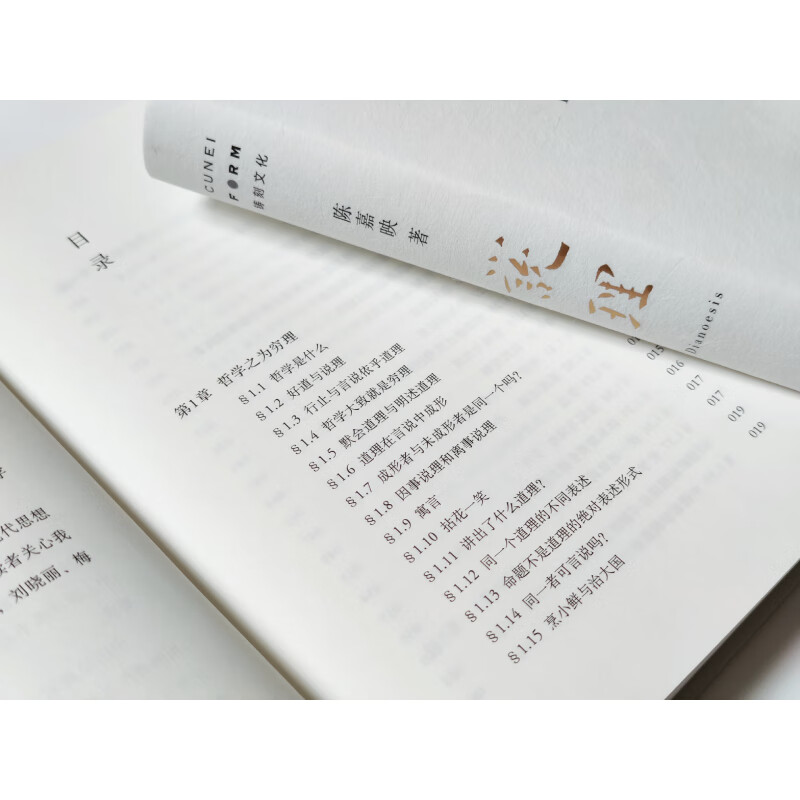 CUNEI
FORM
楔刻文化
陈嘉映 著
说理
Dianoesis
目录
第1章 哲学之为穷理
§1.1 哲学是什么
§1.2 好道与说理
§1.3 行止与言说依乎道理
§1.4 哲学大致就是穷理
§1.5 默会道理与明述道理
§1.6 道理在言说中成形
§1.7 成形者与未成形者是同一个吗？
§1.8 因事说理和离事说理
§1.9 寓言
§1.10 拈花一笑
§1.11 讲出了什么道理？
§1.12 同一个道理的不同表述
§1.13 命题不是道理的绝对表述形式
§1.14 同一者可言说吗？
§1.15 烹小鲜与治大国
015
016
017
017
019
019
代思想
读者关心我
，刘晓丽、梅